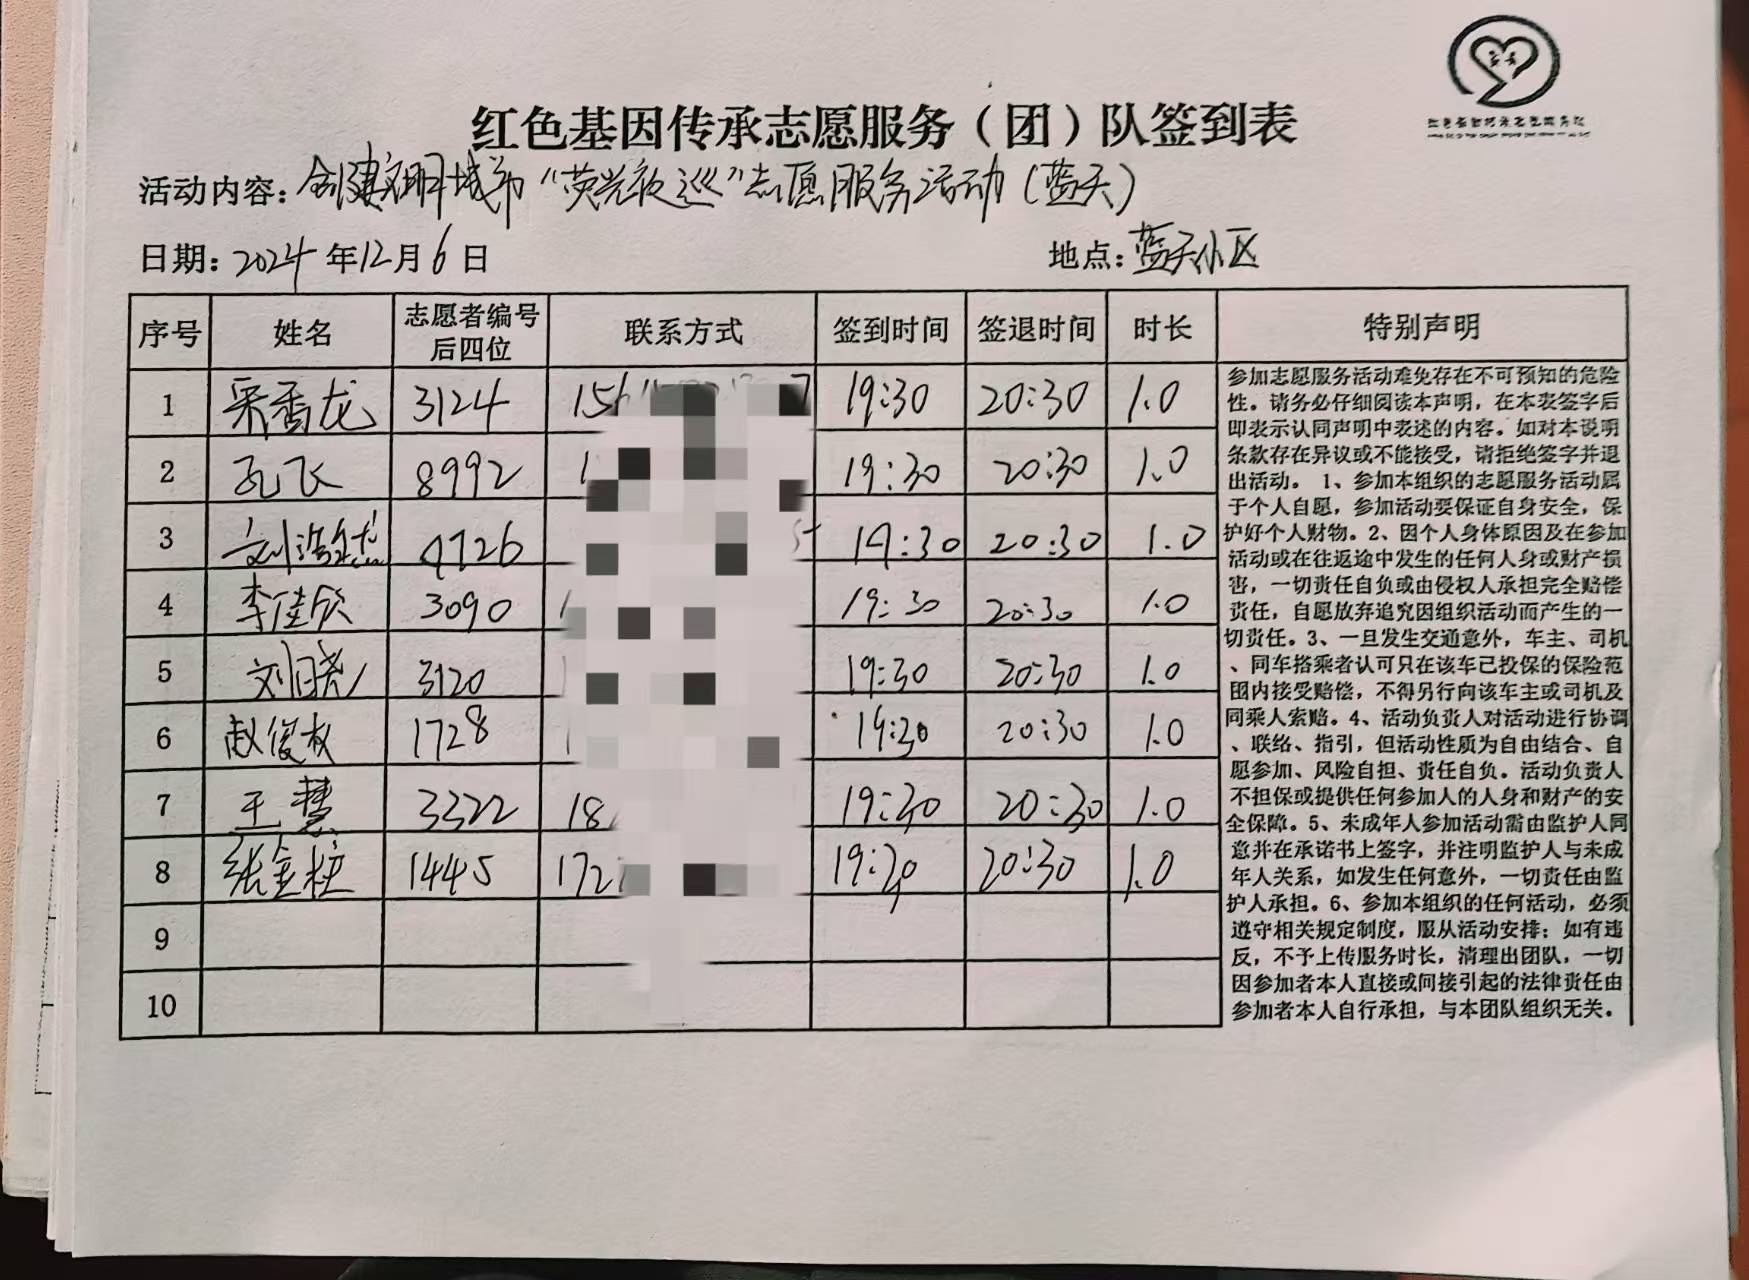 红色基因传承志愿服务（团）队签到表
活动内容：创建文明城市“荧光夜巡”志愿服务活动（蓝天）
日期：2024年12月6日 地点：蓝天小区
序号 姓名 志愿者编号后四位 联系方式 签到时间 签退时间 时长 特别声明
1 宋香龙 3124 19:30 20:30 1.0
2 孔飞 8992 19:30 20:30 1.0
3 刘浩然 4726 19:30 20:30 1.0
4 李佳欣 3090 19:30 20:30 1.0
5 刘晓 3120 19:30 20:30 1.0
6 赵俊权 1728 19:30 20:30 1.0
7 王慧 3322 18 19:30 20:30 1.0
8 张金柱 1445 172 19:30 20:30 1.0
9
10
参加志愿服务活动难免存在不可预知的危险
性。请务必仔细阅读本声明，在本表签字后
即表示认同声明中表述的内容。如对本说明
条款存在异议或不能接受，请拒绝签字并退
出活动。 1、参加本组织的志愿服务活动属
于个人自愿，参加活动要保证自身安全，保
护好个人财物。2、因个人身体原因及在参加
活动或在往返途中发生的任何人身或财产损
害，一切责任自负或由侵权人承担完全赔偿
责任，自愿放弃追究因组织活动而产生的一
切责任。3、一旦发生交通意外，车主、司机
、同车搭乘者认可只在该车已投保的保险范
围内接受赔偿，不得另行向该车主或司机及
同乘人索赔。4、活动负责人对活动进行协调
、联络、指引，但活动性质为自由结合、自
愿参加、风险自担、责任自负。活动负责人
不担保或提供任何参加人的人身和财产的安
全保障。5、未成年人参加活动需由监护人同
意并在承诺书上签字，并注明监护人与未成
年人关系，如发生任何意外，一切责任由监
护人承担。6、参加本组织的任何活动，必须
遵守相关规定制度，服从活动安排；如有违
反，不予上传服务时长，清理出团队，一切
因参加者本人直接或间接引起的法律责任由
参加者本人自行承担，与本团队组织无关。